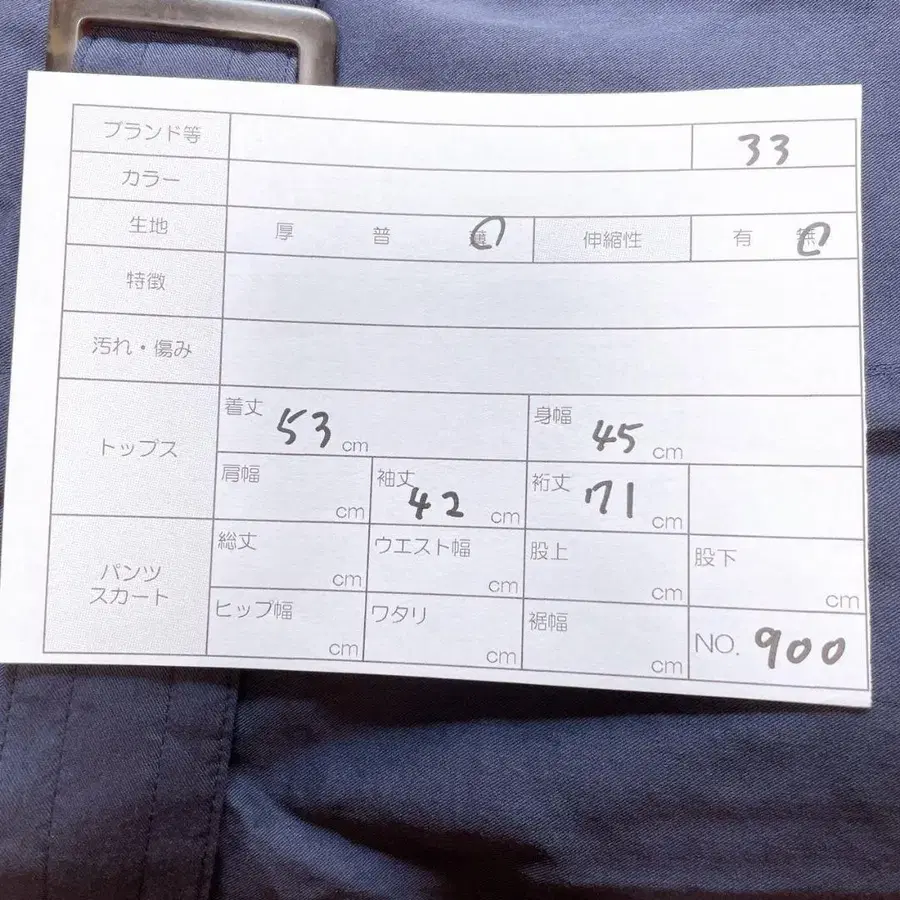 ブランド等 33
カラー
生地 厚 普 薄 伸縮性 有 無
特徴
汚れ・傷み
トップス
着丈 53 cm 身幅 45 cm
肩幅 cm 袖丈 42 cm 裄丈 71 cm
パンツ
スカート
総丈 cm ウエスト幅 cm 股上 cm 股下 cm
ヒップ幅 cm ワタリ cm 裾幅 cm NO. 900